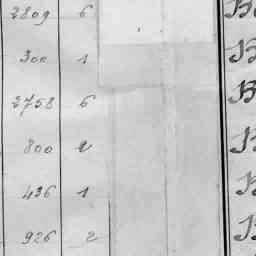 2809 6 B
300 1 B
2758 6 B
800 2 B
436 1 B
926 2 B